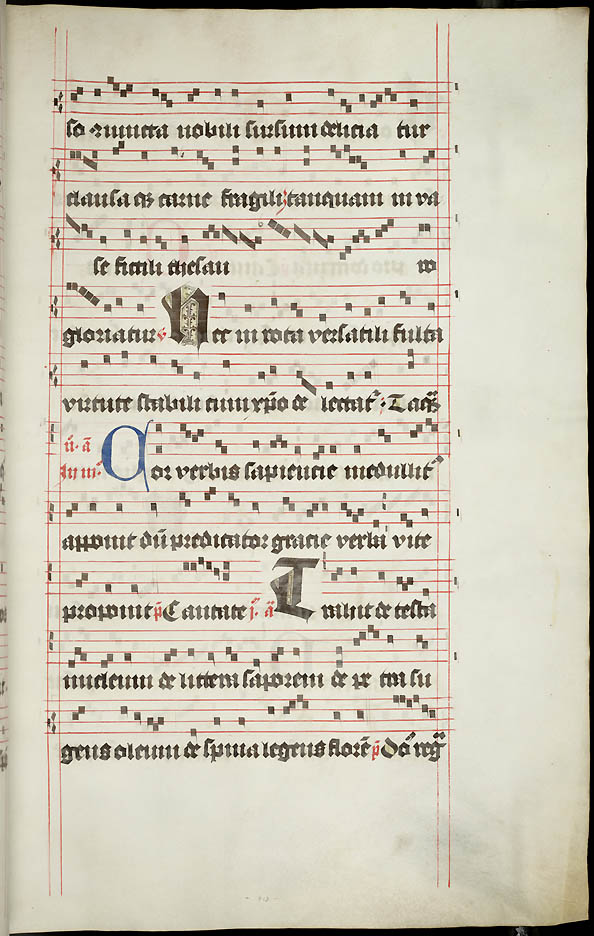 so iuncta nobili sursum delicia tur
clausa q; carne fragili; tanquam in va
se fictili thesau ro
gloriatur v Nec in rota versatili fulta
virtute stabili cum xp̄o de lectat᷑; Tacq̄;
Cor verbis sapiencie medullit᷑
apponit dū predicator gracie verba vite
proponit p̄ Cantate j. ā Trahit de testa
nucleum de littera saporem de pe tra su
gens oleum de spina legens florē p̄ Dō̄ reg̃